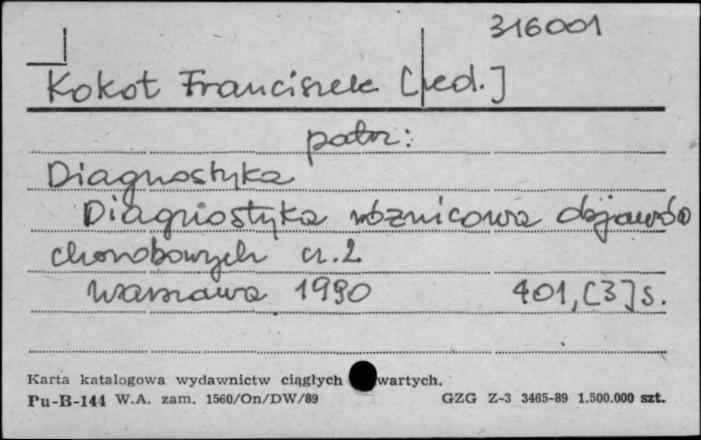 316001
Kokot Franciszek [red.]
patrz:
Diagnostyka
Diagnostyka różnicowa objawów
chorobowych cz. 2
Warszawa 1990 401, [3] s.
Karta katalogowa wydawnictw ciągłych wartych.
Pu-B-144 W.A. zam. 1560/On/DW/89 GZG Z-3 3465-89 1.500.000 szt.